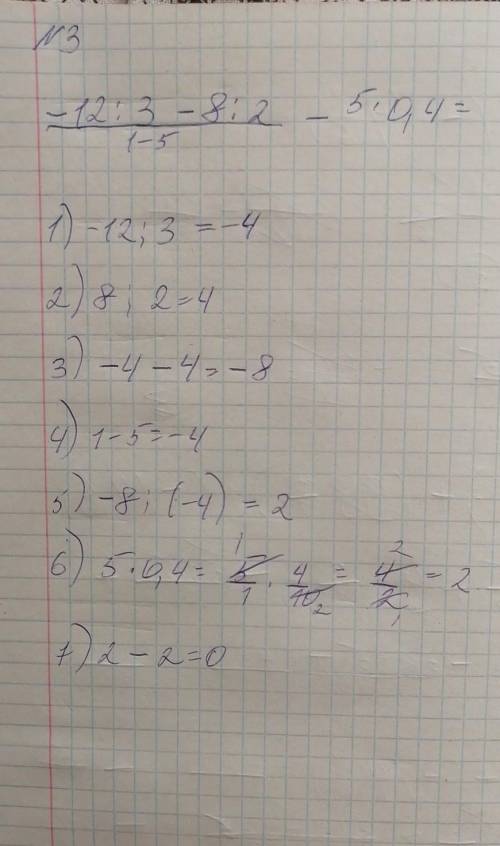 №3
-12 : 3 - 8 : 2 / 1-5 - 5 · 0,4 =
1) -12 : 3 = -4
2) 8 : 2 = 4
3) -4 - 4 = -8
4) 1 - 5 = -4
5) -8 : (-4) = 2
6) 5 · 0,4 = 5/1 · 4/10 = 4/2 = 2
7) 2 - 2 = 0